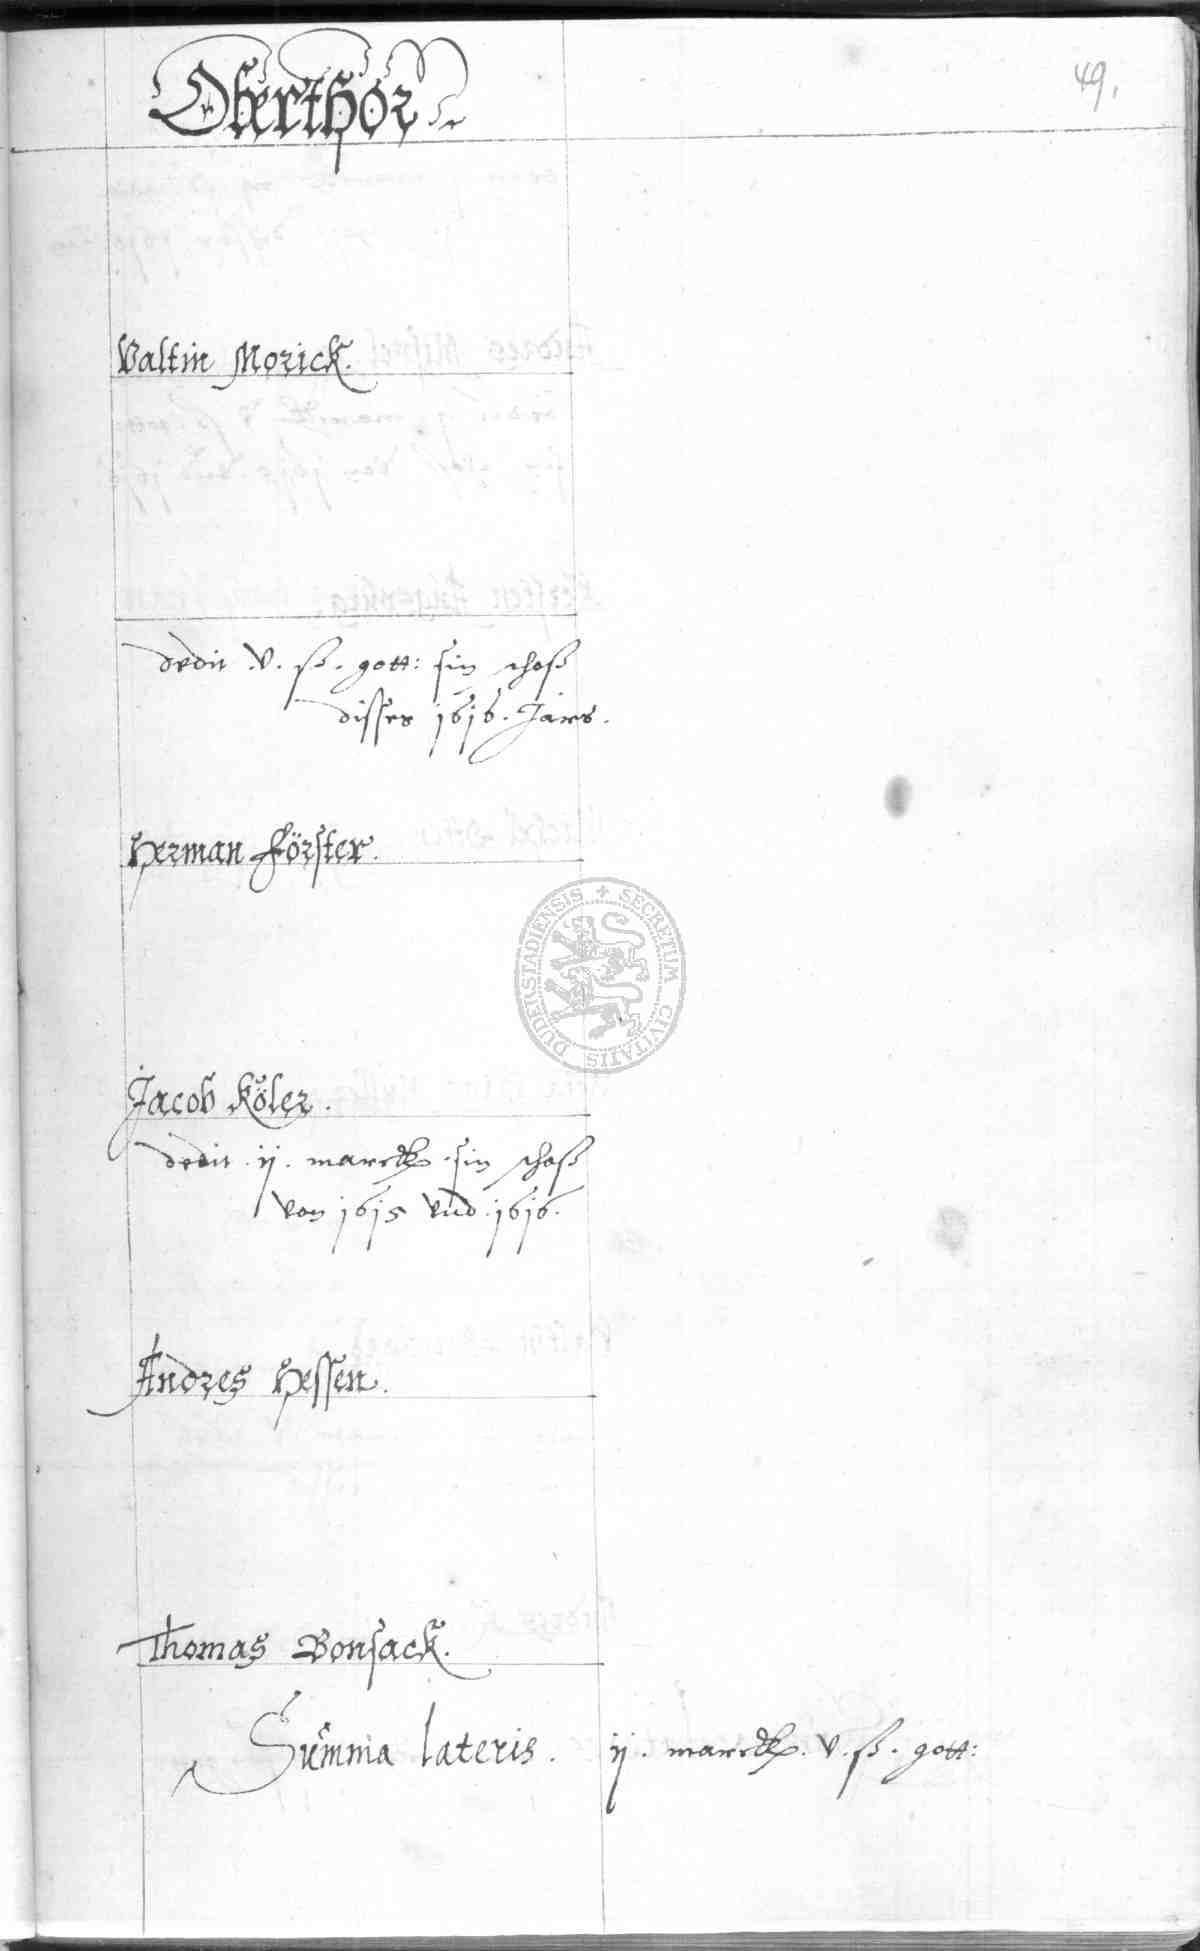 Oberthor
49.
Valtin Morick.
dedit .v. ß. gott: sin schoß
disses 1616. Jars.
Herman Förster.
DUDERSTADIENSIS + SECRETUM CIVITATIS
Jacob Köler.
dedit .ij. marck .sin schoß
von 1615 vnd .1616.
Andres Hessen.
Thomas Bonsack.
Summa lateris. ij. marck. v. ß. gott: